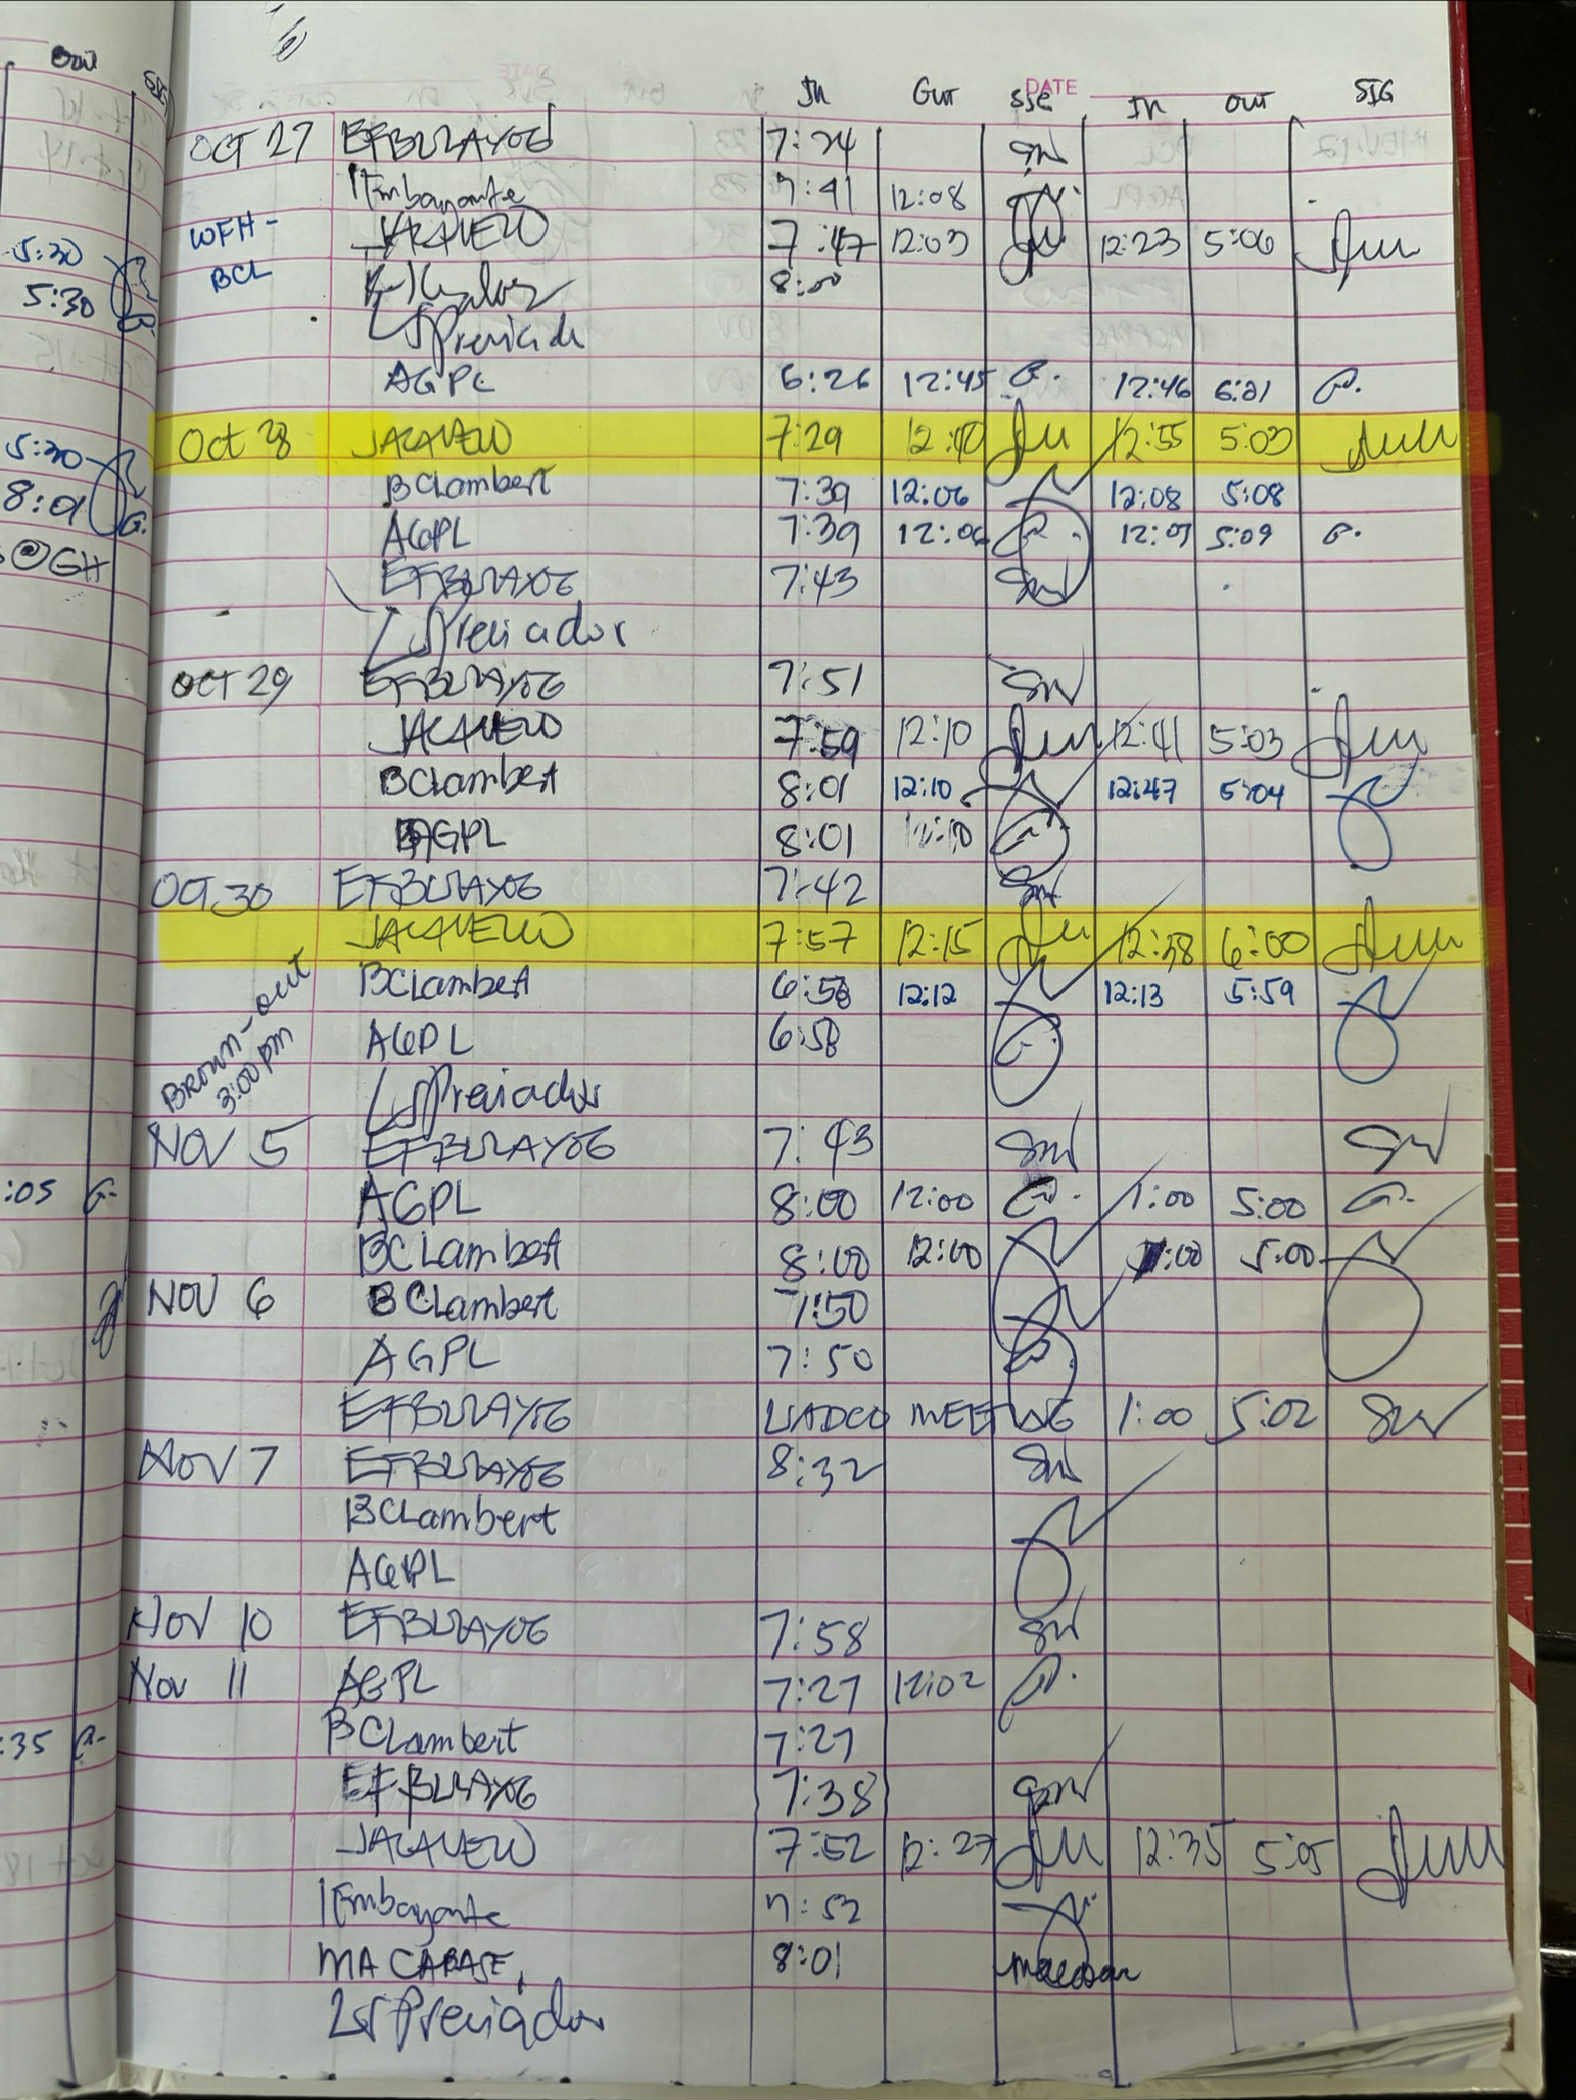 IN OUT SIG DATE IN OUT SIG
OCT 27 EFBURAYOG 7:24
7:41 12:08
WFH - JACAVERO 7:47 12:03 12:23 5:06
5:30
BCL 8:00
5:30
AGPL 6:26 12:45 12:46 6:21
Oct 28 JACAVERO 7:29 12:40 12:55 5:03
8:01 BCLambert 7:39 12:06 12:08 5:08
AGPL 7:39 12:06 12:07 5:09
@GH EFBURAYOG 7:43
LSPreciador
OCT 29 EFBURAYOG 7:51
JACAVERO 7:59 12:10 12:41 5:03
BCLambert 8:01 12:10 12:47 5:04
AGPL 8:01 12:10
OCT 30 EFBURAYOG 7:42
JACAVERO 7:57 12:15 12:38 6:00
BCLambert 6:58 12:12 12:13 5:59
Brown-out
3:00pm
AGPL 6:58
LSPreciador
NOV 5 EFBURAYOG 7:43
:05 AGPL 8:00 12:00 1:00 5:00
BCLambert 8:00 12:00 1:00 5:00
NOV 6 BCLambert 7:50
AGPL 7:50
EFBURAYOG LIADCO MEETING 1:00 5:02
Nov 7 EFBURAYOG 8:32
BCLambert
AGPL
Nov 10 EFBURAYOG 7:58
Nov 11 AGPL 7:27 12:02
:35 BCLambert 7:27
EFBURAYOG 7:38
JACAVERO 7:52 12:27 12:35 5:05
7:52
MA CABASE 8:01
LSPreciador